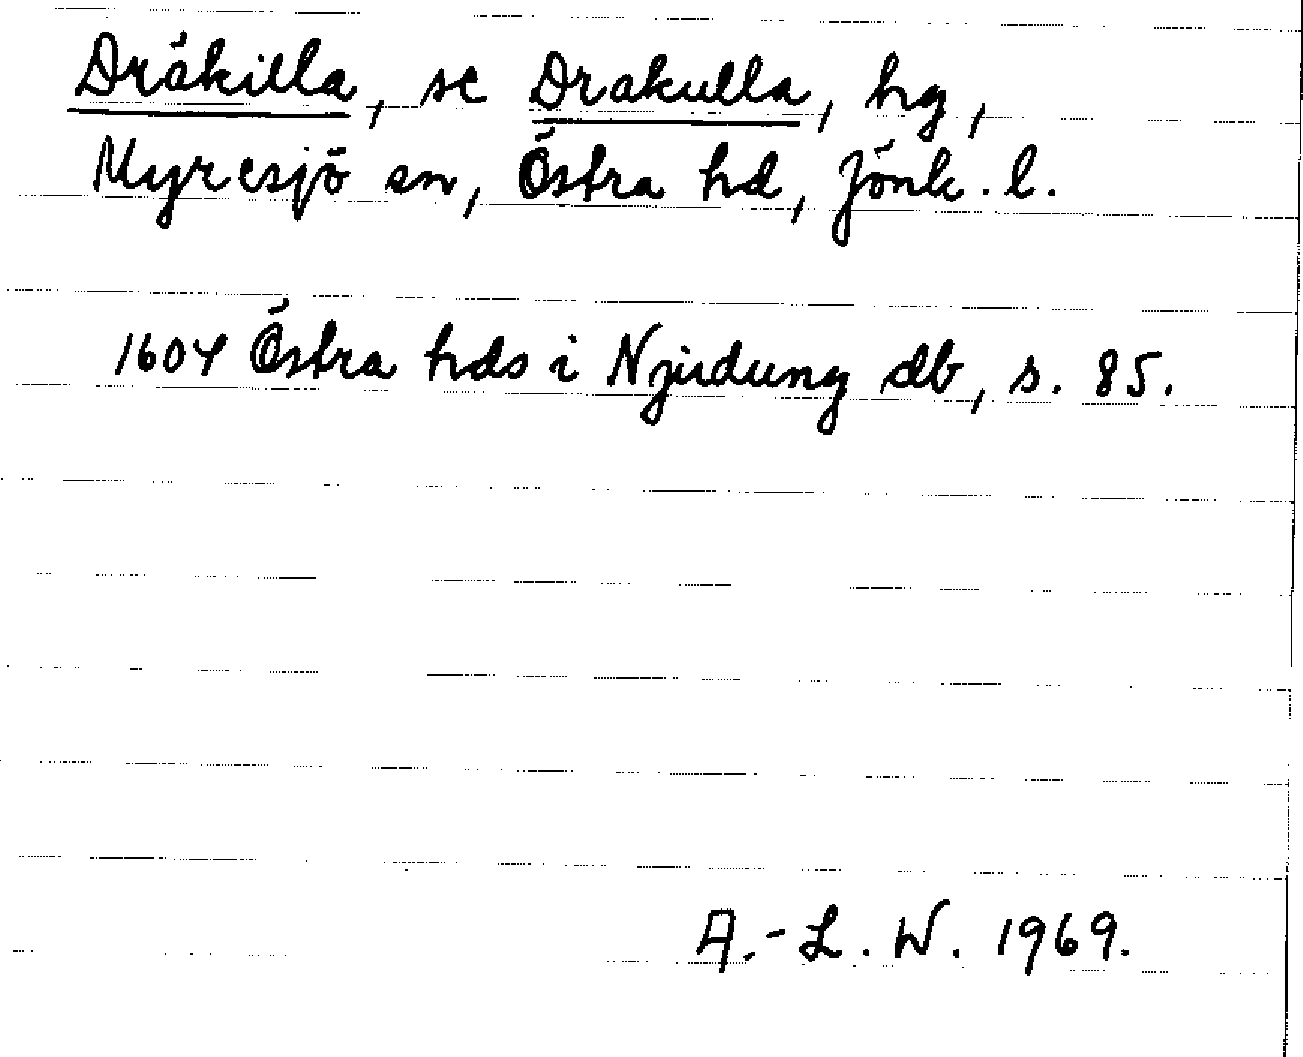 Dråkilla, se Drakulla, hg,
Myresjö sn, Östra hd, Jönk. l.
1604 Östra hds i Njudung db, s. 85.
A.-L. W. 1969.